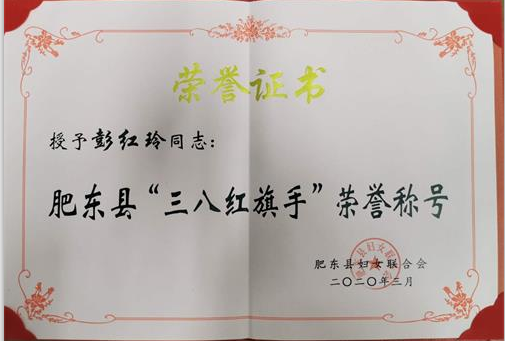 荣誉证书
授予彭红玲同志：
肥东县“三八红旗手”荣誉称号
肥东县妇女联合会
二〇二〇年三月